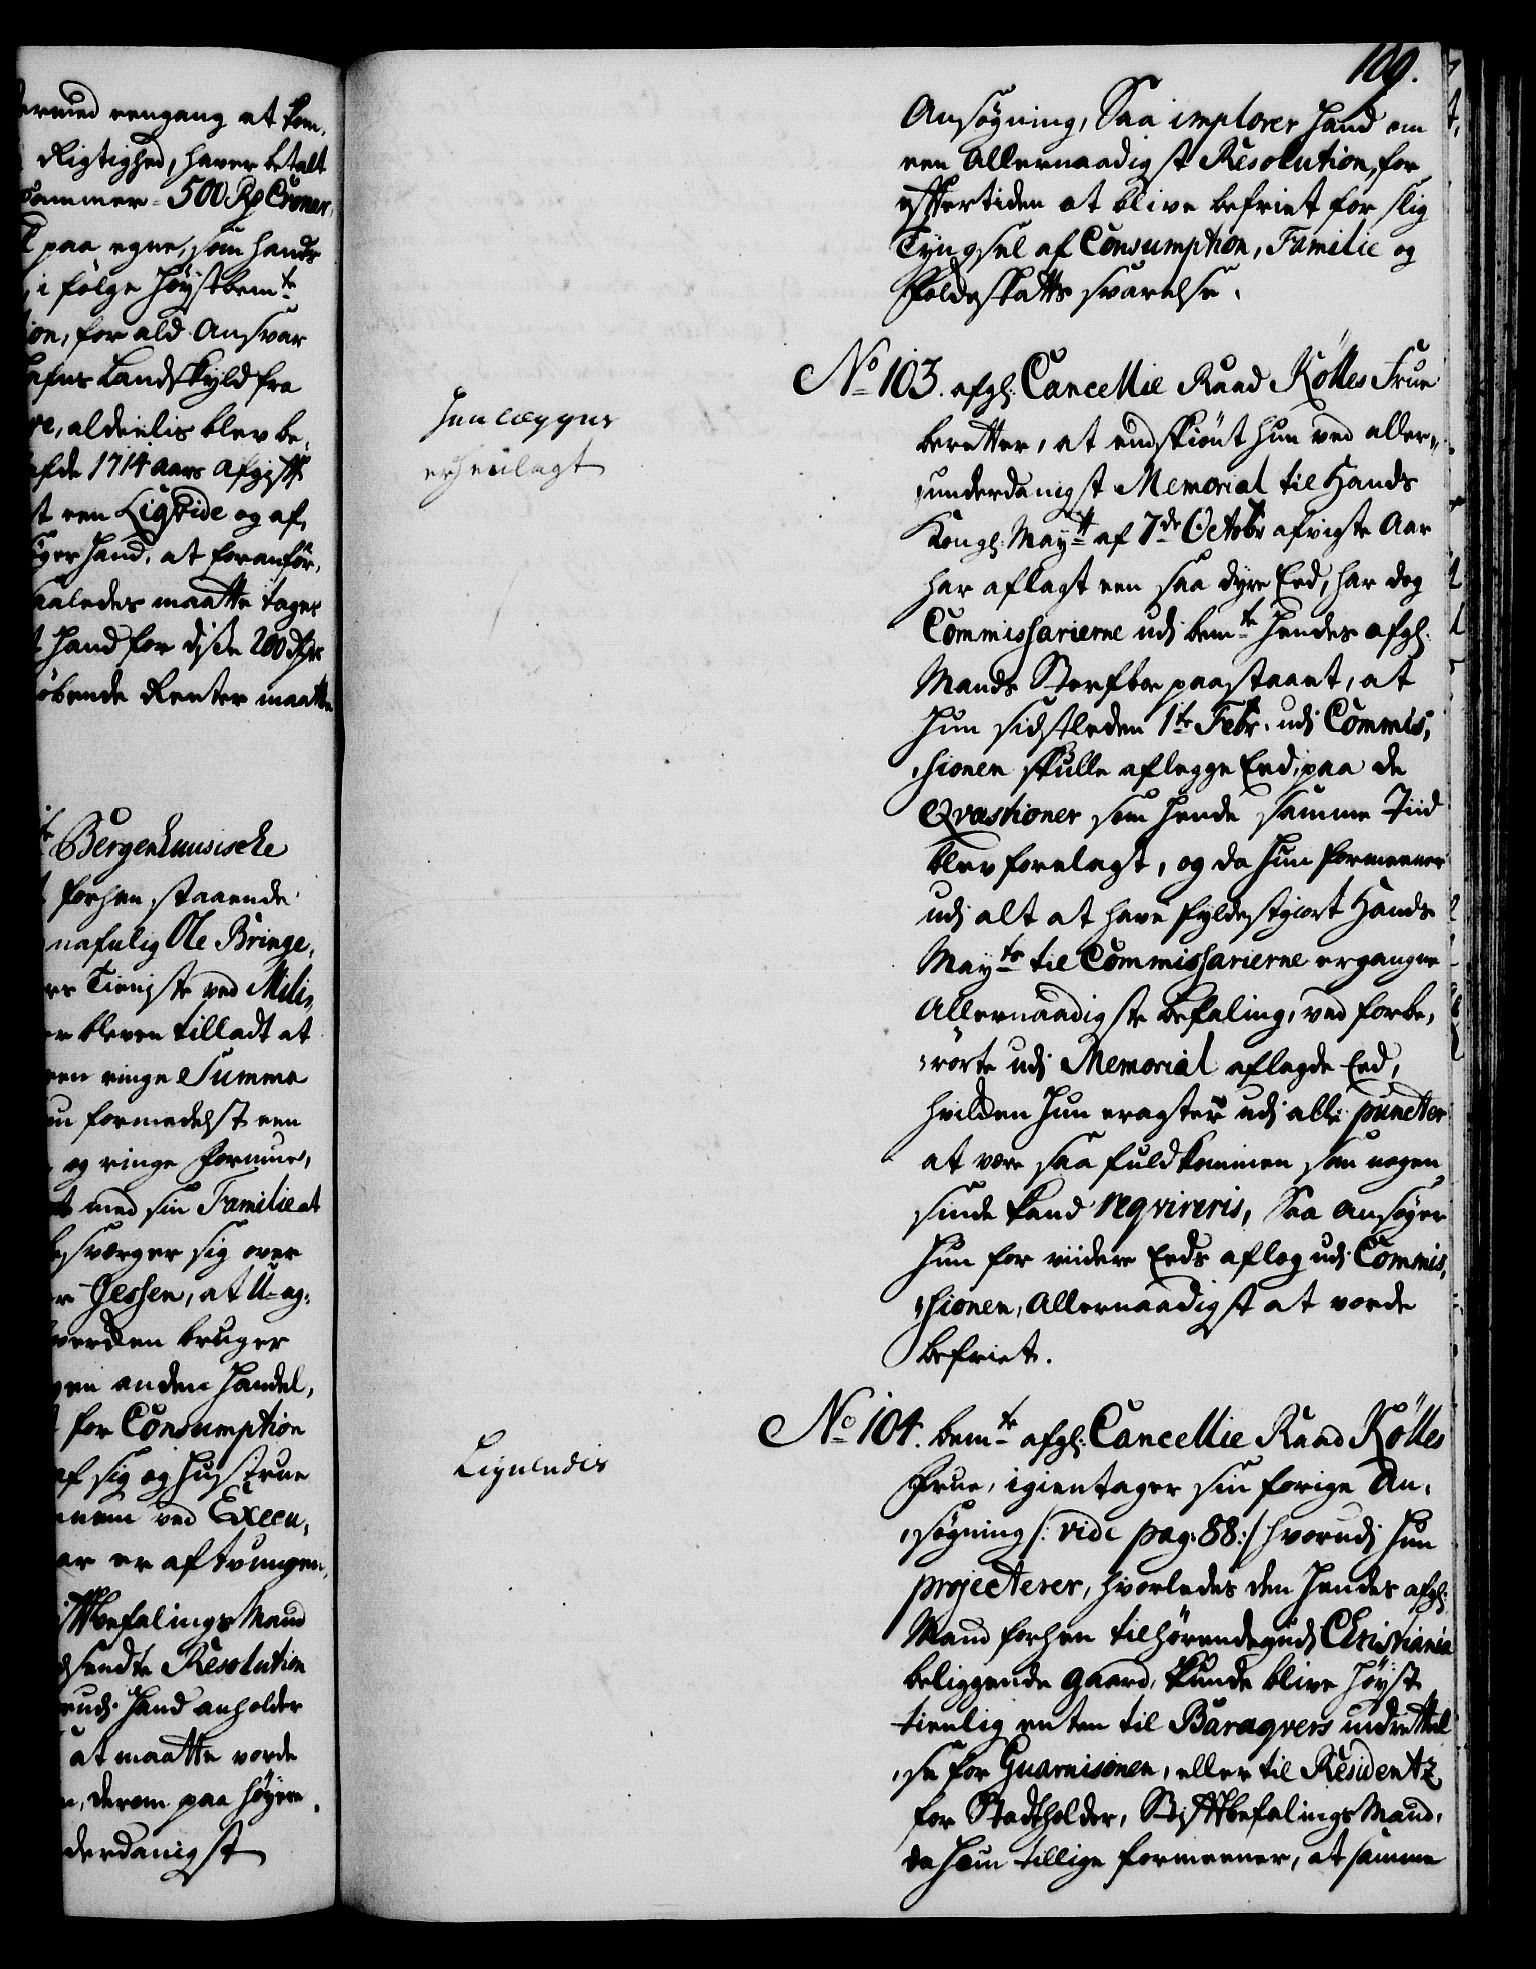 ermed eengang at kom,
Rigtighed, haver betalt
Cammer 500 Rd Croner,
paa egne, som hands
i følge Høystbemte
ion, for ald Ansvar
Landskyld fra
re, aldeelis blev be,
afde 1714 Aars Afgift
st een Liqvide og af,
ger Hand, at foranför,
saaledes maatte tages
t Hand for disse 200 Rdr
øbende Renter maatte
te Bergenhuusische
forhen staaende
nafnlig Ole Bringe,
ers Tieniste ved Mili,
er bleven tilladt at
een ringe Summa
formedelst een
og ringe formue,
med sin Familie at
besværger sig over
er Gessen, at U-ag,
hverken bruger
gen anden Handel,
for Consumption
af sig og Hustrue
nem ved Execu,
ar er aftvungen,
iftbefalings Mand
dsendte Resolution
rudi Hand anholder
at maatte vorde
n, derom paa høyere
derdanigst
109.
Ansøgning, Saa implorer Hand om
een Allernaadigst Resolution, for
eftertiden at blive befriet for slig
Tyngsel af Consumption, Familie og
Foldeskatts svarelse.
No 103. afgl: Cancellie Raad Röttes Frue
beretter, at endskiönt hun ved aller,,
,,underdanigst Memorial til Hands
Kongl: Maytt af 7de Octobr afvigte Aar
har aflagt een saa dyre Eed, har dog
Commissarierne udi bemte Hendes afgl:
Mands Sterfboe paastaaet, at
Hun sidstleden 1te Febr. udi Commis,
,sionen skulle aflegge Eed, paa de
Qvæstioner som hende samme Tiid
blev forelagt, og da hun formeener
udi alt at have fyldestgiort Hands
Mayts til Commissarierne ergangne
Allernaadigste befaling, ved forbe,
,rørte udi Memorial aflagde Eed,
hvilken hun eragter udi alle puncter
at være saa fuldkommen som nogen
sinde kand reqvireris, Saa ansøger
hun for viidere Eeds aflæg udi Commis,
,sionen, Allernaadigst at vorde
befriet.
Henlægges
er henlagt
No 104. bemte afgl: Cancellie Raad Röttes
Frue, igientager sin forige An,
,søgning /: vide pag: 88:/ hvorudi hun
projecterer, hvorledes den hendes afgl:
Mand forhen tilhörende, udi Christiania
beliggende Gaard, kunde blive høyst
tienlig enten til Baraqvers indrettel
,se for Guarnisonen, eller til Residentz
for Stadtholder, Stiftbefalings Mand,
da hun tillige formeener, at samme
Ligeledis